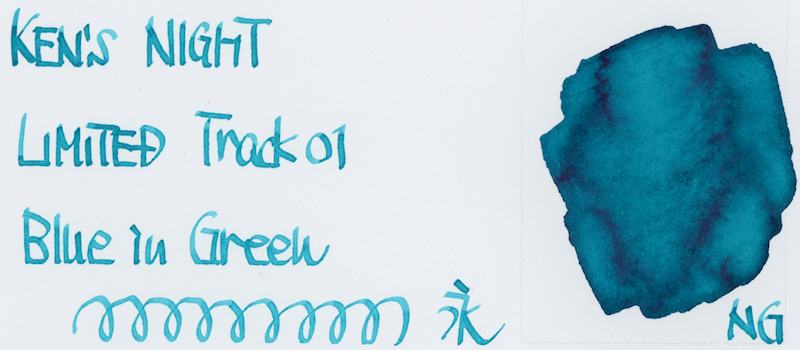 KEN'S NIGHT
LIMITED Track 01
Blue in Green
永
NG